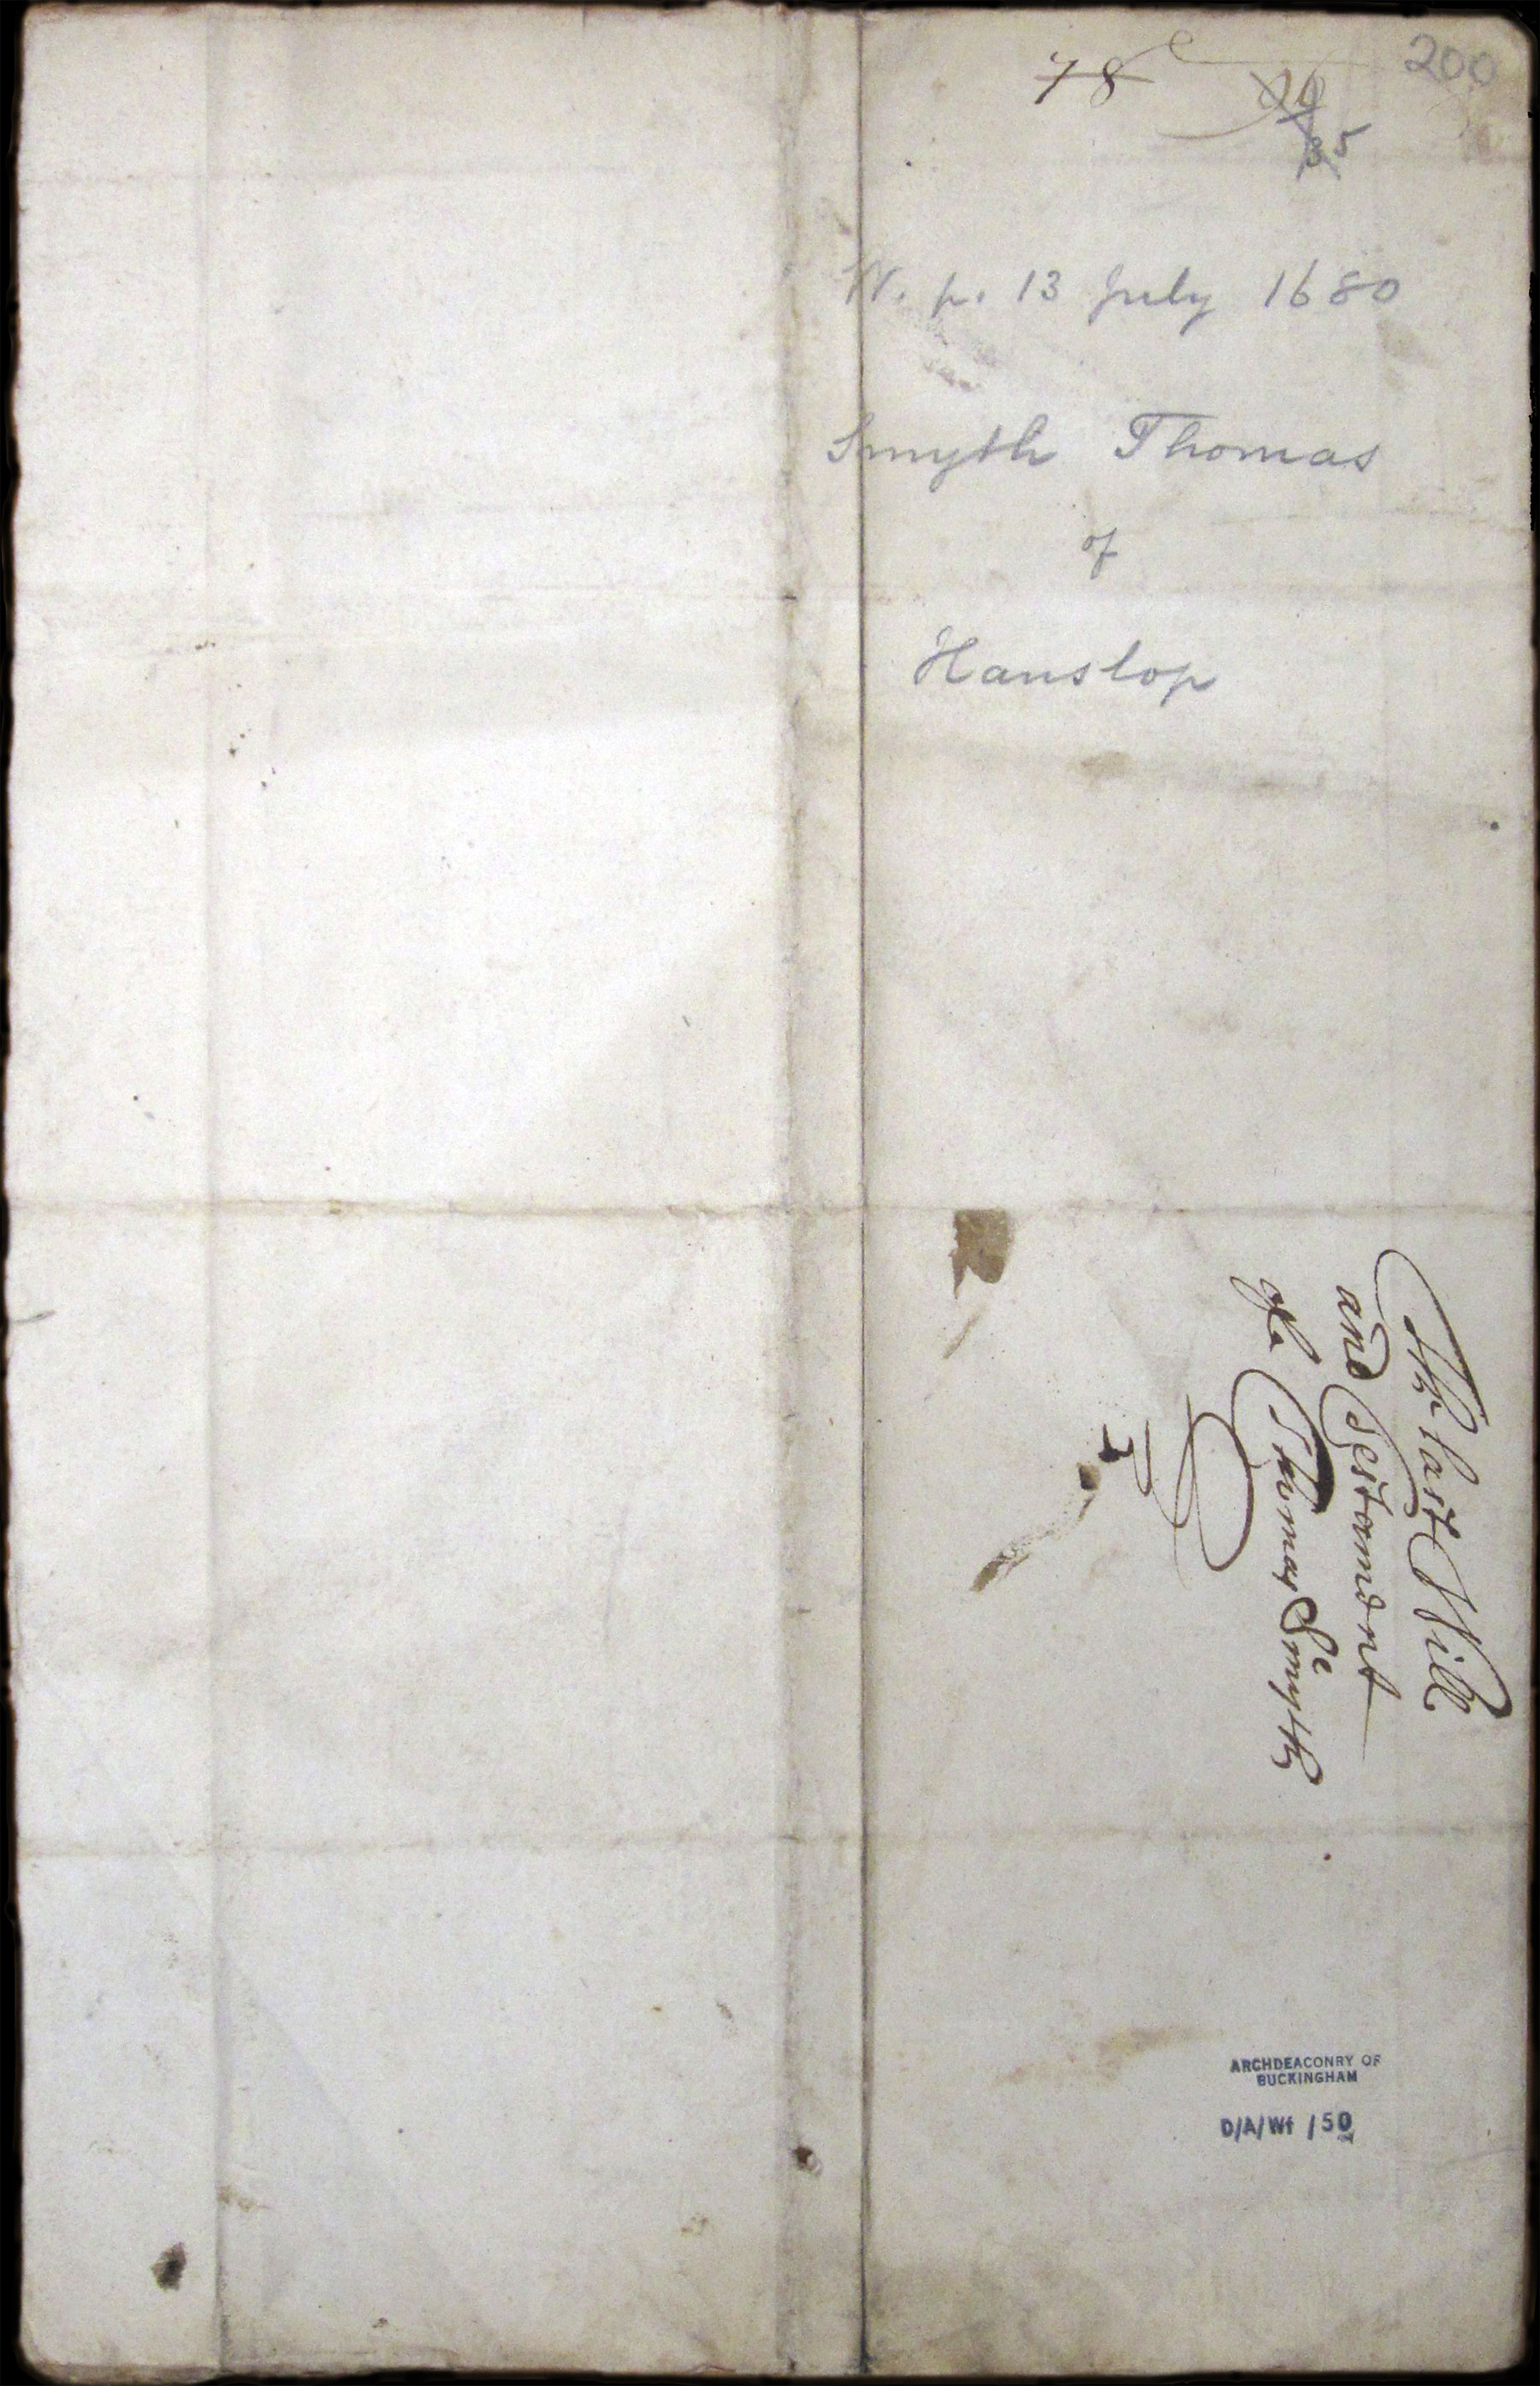 200
78
35
W. p. 13 July 1680
Smyth Thomas
of
Hanslop
The last Will
and Testament
of Thomas Smyth
ARCHDEACONRY OF
BUCKINGHAM
D/A/Wf /50